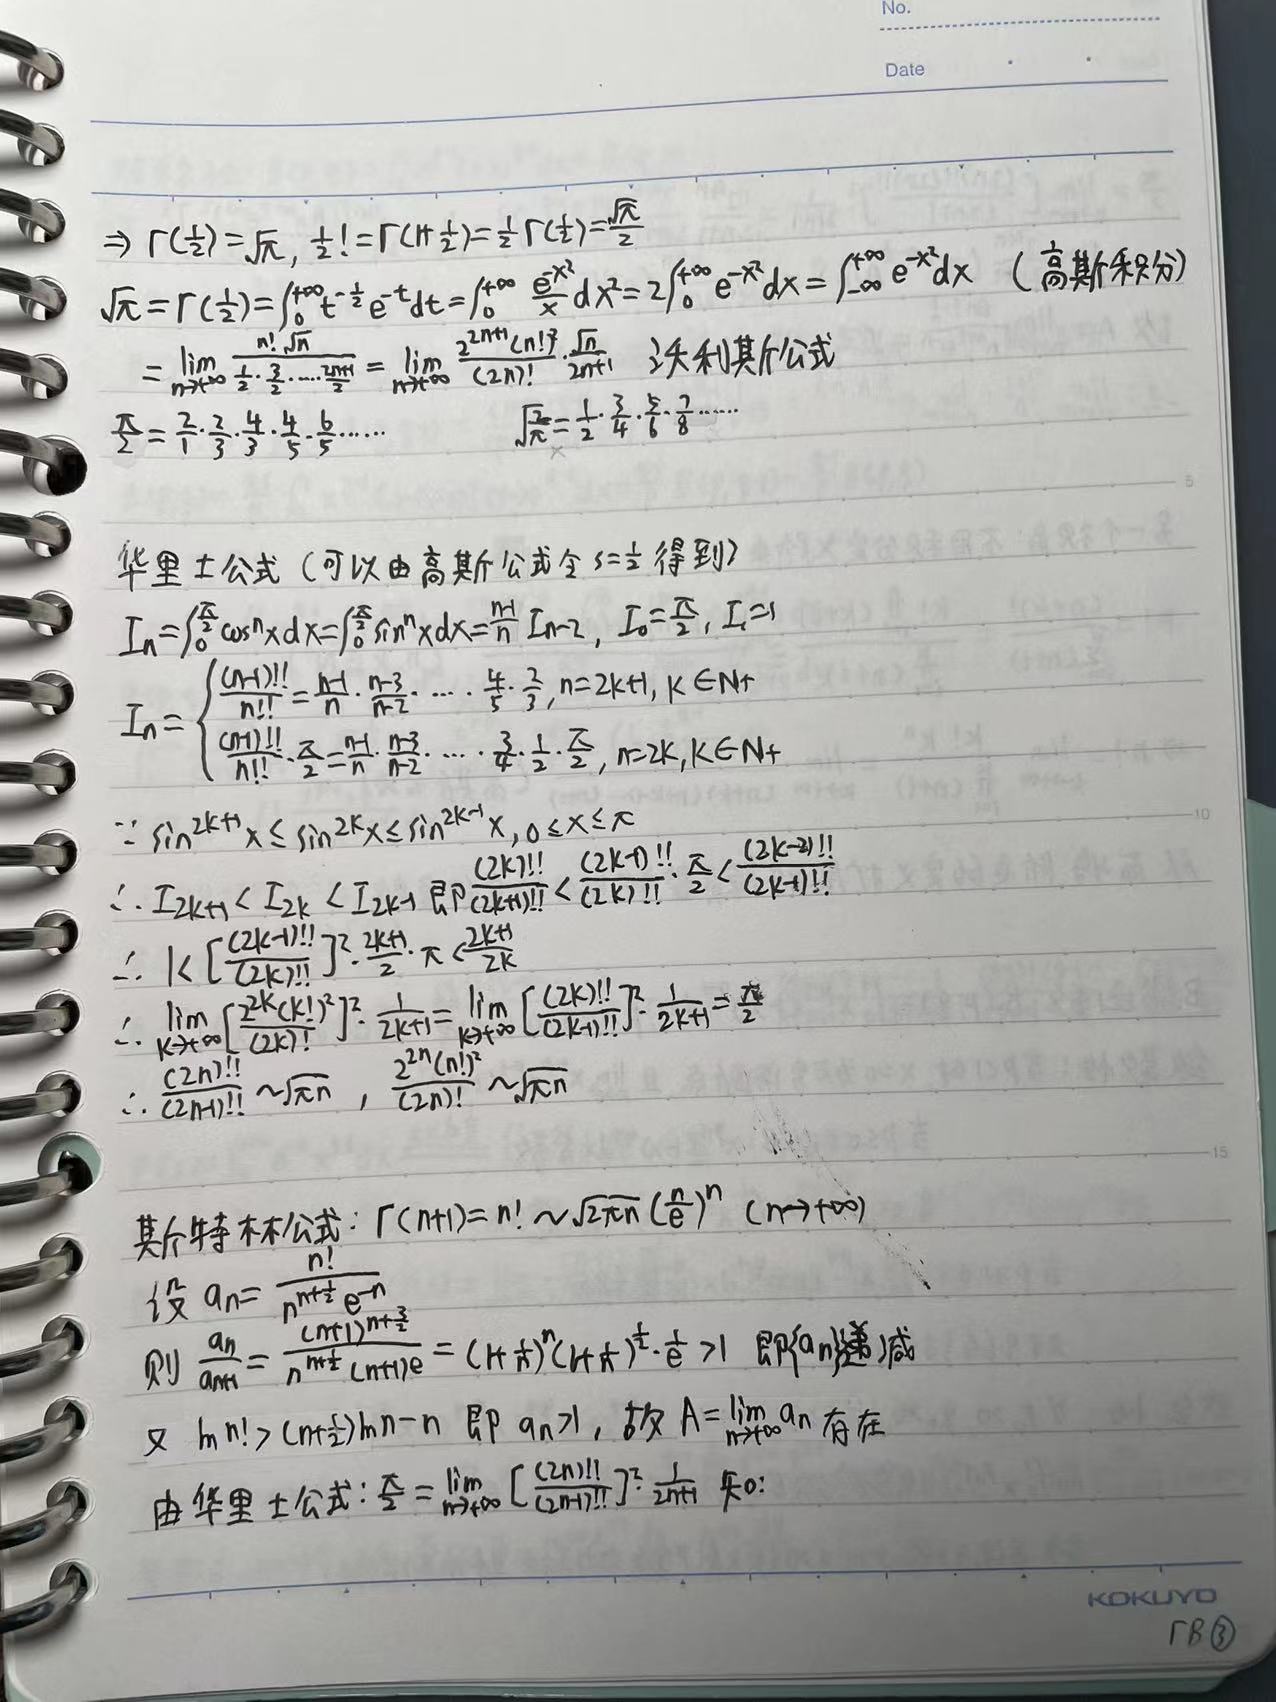 No.
Date
⇒ Γ(1/2) = √π, 1/2! = Γ(1+1/2) = 1/2 Γ(1/2) = √π/2
√π = Γ(1/2) = ∫_0^{+∞} t^{-1/2} e^{-t} dt = ∫_0^{+∞} e^{-x²}/x dx² = 2∫_0^{+∞} e^{-x²} dx = ∫_{-∞}^{+∞} e^{-x²} dx (高斯积分)
= lim_{n→+∞} n!√n / (1/2 · 3/2 · …… · (2n+1)/2) = lim_{n→+∞} 2^{2n+1}(n!)²/(2n)! · √n/(2n+1) 沃利斯公式
π/2 = 2/1 · 2/3 · 4/3 · 4/5 · 6/5 …… √(2/π) = 1/2 · 3/4 · 5/6 · 7/8 ……
5
华里士公式 (可以由高斯公式令 s=1/2 得到)
I_n = ∫_0^{π/2} cos^n x dx = ∫_0^{π/2} sin^n x dx = (n-1)/n I_{n-2}, I_0 = π/2, I_1 = 1
I_n = { (n-1)!!/n!! = (n-1)/n · (n-3)/(n-2) · … · 4/5 · 2/3, n=2k+1, k∈N+
(n-1)!!/n!! · π/2 = (n-1)/n · (n-3)/(n-2) · … · 3/4 · 1/2 · π/2, n=2k, k∈N+
10
∵ sin^{2k+1} x ≤ sin^{2k} x ≤ sin^{2k-1} x, 0≤x≤π
∴ I_{2k+1} < I_{2k} < I_{2k-1} 即 (2k)!!/(2k+1)!! < (2k-1)!!/(2k)!! · π/2 < (2k-2)!!/(2k-1)!!
∴ 1 < [(2k-1)!!/(2k)!!]² · (2k+1)/2 · π < (2k+1)/2k
∴ lim_{k→+∞} [2^{2k}(k!)²/(2k)!]² · 1/(2k+1) = lim_{k→+∞} [(2k)!!/(2k-1)!!]² · 1/(2k+1) = π/2
∴ (2n)!!/(2n-1)!! ~ √πn , 2^{2n}(n!)²/(2n)! ~ √πn
15
斯特林公式: Γ(n+1) = n! ~ √2πn (n/e)^n (n→+∞)
设 a_n = n!/(n^{n+1/2} e^{-n})
则 a_n/a_{n+1} = (n+1)^{n+3/2}/(n^{n+1/2}(n+1)e) = (1+1/n)^n (1+1/n)^{1/2} · 1/e > 1 即{a_n}递减
又 ln n! > (n+1/2)ln n - n 即 a_n>1, 故 A = lim_{n→+∞} a_n 存在
由华里士公式: π/2 = lim_{n→+∞} [(2n)!!/(2n-1)!!]² · 1/(2n+1) 知:
KOKUYO
ΓB③